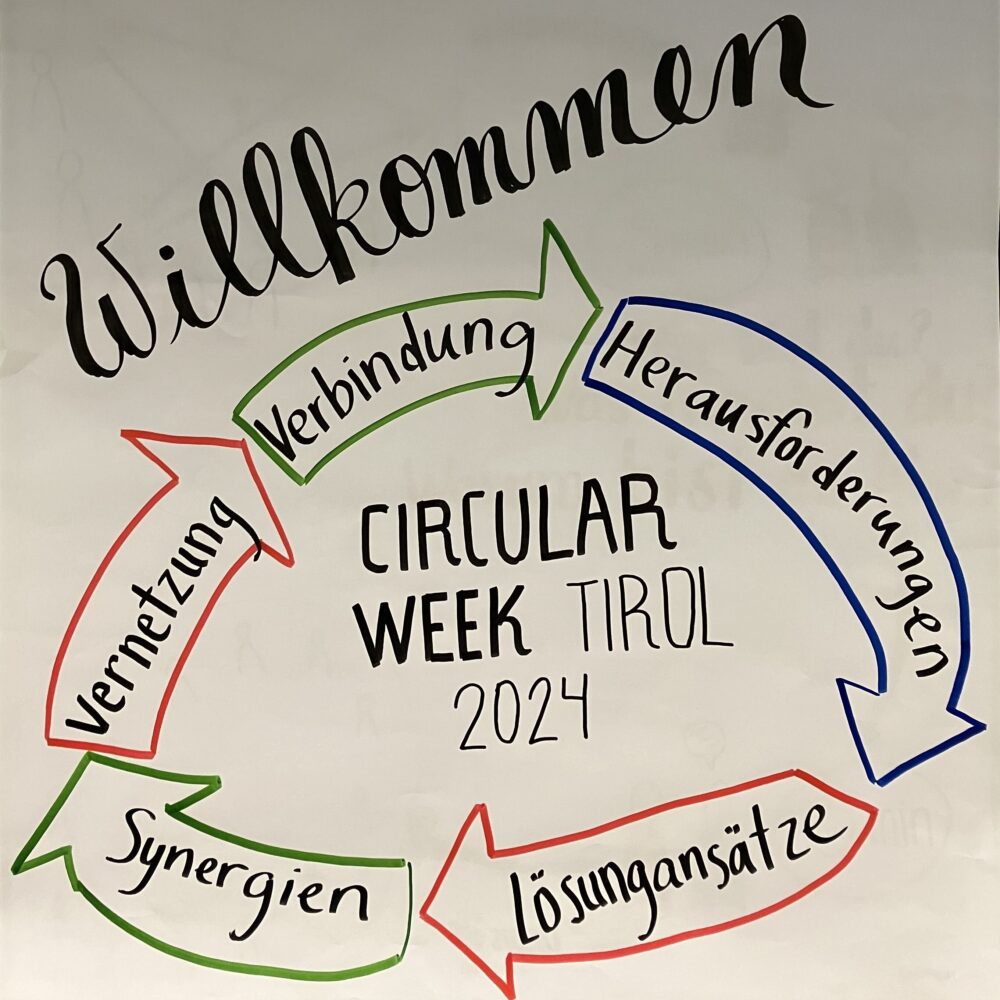 Willkommen
Verbindung
Herausforderungen
Lösungansätze
Synergien
Vernetzung
CIRCULAR
WEEK TIROL
2024